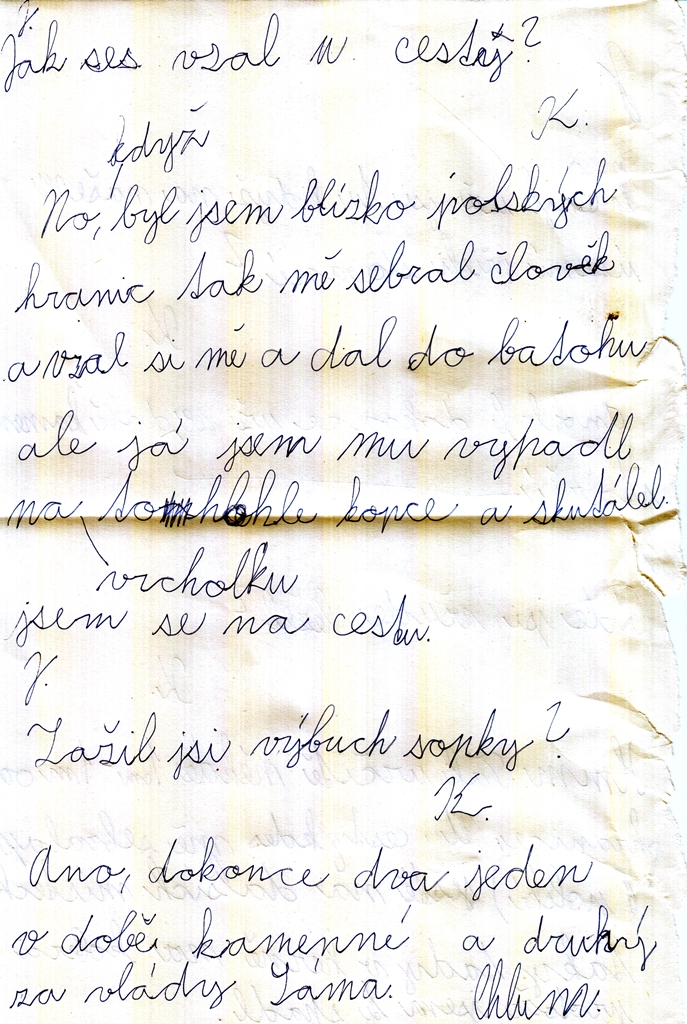 J.
Jak ses vzal u cesty?
K.
když
No, byl jsem blízko polských
hranic tak mě sebral člověk
a vzal si mě a dal do batohu
ale já jsem mu vypadl
na tomhohle kopce a skutálel
vrcholku
jsem se na cestu.
J.
Zažil jsi výbuch sopky?
K.
Ano, dokonce dva jeden
v době kamenné a druhý
za vlády Sáma. Chlum.